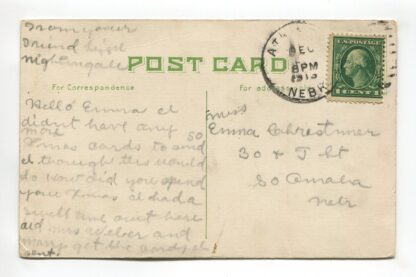 From your
friend Hazel
Nightingale
POST CARD
For Correspondence
For address
DEC
8PM
1913
NEBR
U.S. POSTAGE
1 CENT 1
Hello Emma I
didn't have any
more so
Xmas cards to send
I though this would
do how did you spend
your Xmas I had a
swell time out here
did mrs Weber and
mary get the cards I
sent.
Miss
Emma Chrestmer
30 & J St
So Omaha
Nebr